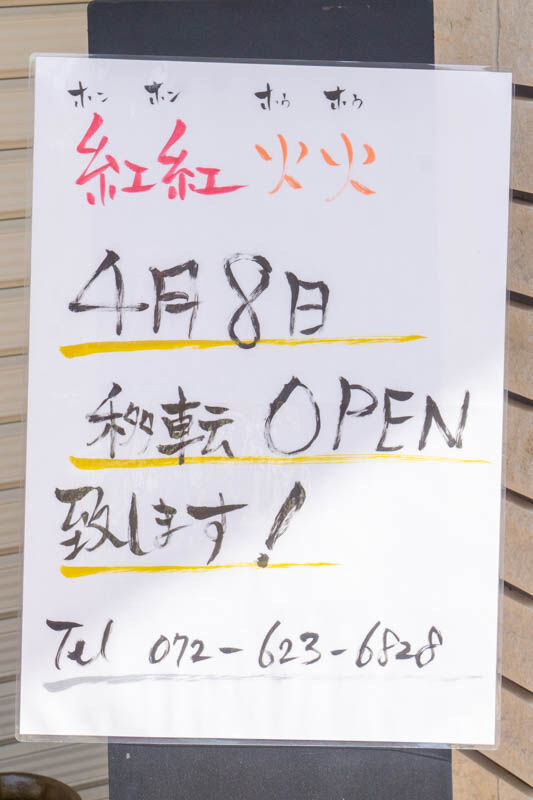 ホン ホン ホウ ホウ
紅紅火火
4月8日
移転 OPEN
致します!
Tel 072-623-6828